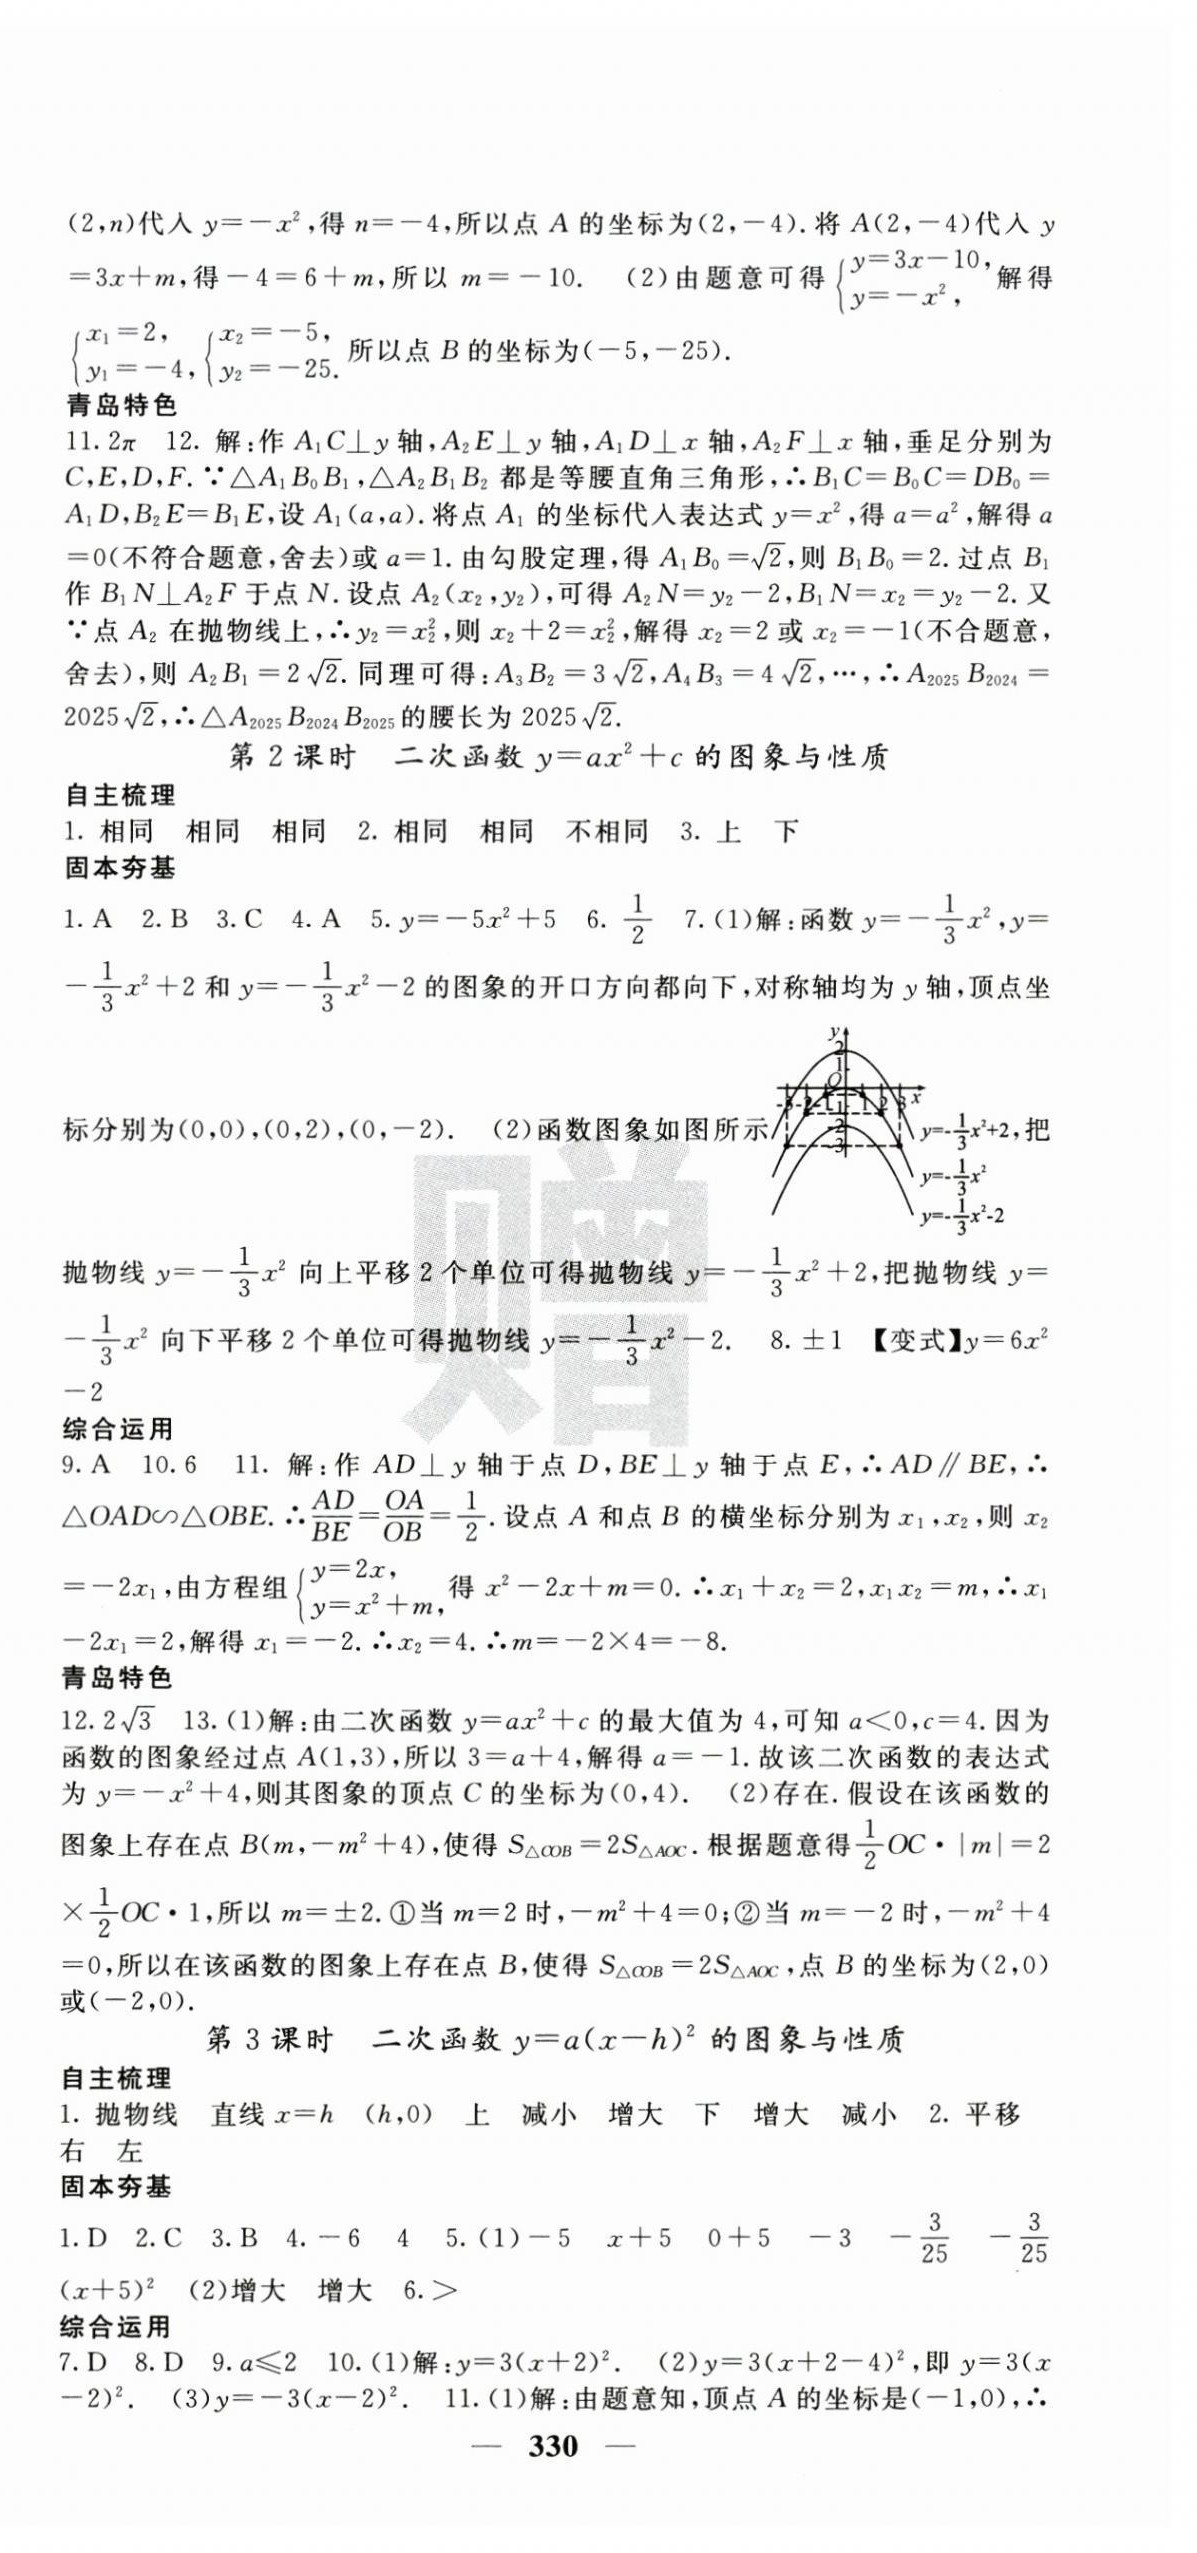 (2,n)代入 y=-x²,得 n=-4,所以点 A 的坐标为(2,-4).将 A(2,-4)代入 y
=3x+m,得-4=6+m,所以 m=-10. (2)由题意可得{y=3x-10, y=-x², 解得
{x₁=2, y₁=-4, {x₂=-5, y₂=-25. 所以点 B 的坐标为(-5,-25).
青岛特色
11. 2π 12. 解:作 A₁C⊥y 轴,A₂E⊥y 轴,A₁D⊥x 轴,A₂F⊥x 轴,垂足分别为
C,E,D,F.∵△A₁B₀B₁,△A₂B₁B₂ 都是等腰直角三角形,∴B₁C=B₀C=DB₀=
A₁D,B₂E=B₁E,设 A₁(a,a).将点 A₁ 的坐标代入表达式 y=x²,得 a=a²,解得 a
=0(不符合题意,舍去)或 a=1.由勾股定理,得 A₁B₀=√2,则 B₁B₀=2.过点 B₁
作 B₁N⊥A₂F 于点 N.设点 A₂(x₂,y₂),可得 A₂N=y₂-2,B₁N=x₂=y₂-2.又
∵点 A₂ 在抛物线上,∴y₂=x₂²,则 x₂+2=x₂²,解得 x₂=2 或 x₂=-1(不合题意,
舍去),则 A₂B₁=2√2.同理可得:A₃B₂=3√2,A₄B₃=4√2,…,∴A₂₀₂₅B₂₀₂₄=
2025√2,∴△A₂₀₂₅B₂₀₂₄B₂₀₂₅的腰长为 2025√2.
第 2 课时 二次函数 y=ax²+c 的图象与性质
自主梳理
1. 相同 相同 相同 2. 相同 相同 不相同 3. 上 下
固本夯基
1. A 2. B 3. C 4. A 5. y=-5x²+5 6. 1/2 7. (1)解:函数 y=-1/3x²,y=
-1/3x²+2 和 y=-1/3x²-2 的图象的开口方向都向下,对称轴均为 y 轴,顶点坐
标分别为(0,0),(0,2),(0,-2). (2)函数图象如图所示 y=-1/3x²+2,把
y=-1/3x²
y=-1/3x²-2
抛物线 y=-1/3x² 向上平移 2 个单位可得抛物线 y=-1/3x²+2,把抛物线 y=
-1/3x² 向下平移 2 个单位可得抛物线 y=-1/3x²-2. 8. ±1 【变式】y=6x²
-2
赠
综合运用
9. A 10. 6 11. 解:作 AD⊥y 轴于点 D,BE⊥y 轴于点 E,∴AD∥BE,∴
△OAD∽△OBE.∴AD/BE=OA/OB=1/2.设点 A 和点 B 的横坐标分别为 x₁,x₂,则 x₂
=-2x₁,由方程组{y=2x, y=x²+m, 得 x²-2x+m=0.∴x₁+x₂=2,x₁x₂=m,∴x₁
-2x₁=2,解得 x₁=-2.∴x₂=4.∴m=-2×4=-8.
青岛特色
12. 2√3 13. (1)解:由二次函数 y=ax²+c 的最大值为 4,可知 a<0,c=4.因为
函数的图象经过点 A(1,3),所以 3=a+4,解得 a=-1.故该二次函数的表达式
为 y=-x²+4,则其图象的顶点 C 的坐标为(0,4). (2)存在.假设在该函数的
图象上存在点 B(m,-m²+4),使得 S△COB=2S△AOC.根据题意得1/2OC·|m|=2
×1/2OC·1,所以 m=±2.①当 m=2 时,-m²+4=0;②当 m=-2 时,-m²+4
=0,所以在该函数的图象上存在点 B,使得 S△COB=2S△AOC,点 B 的坐标为(2,0)
或(-2,0).
第 3 课时 二次函数 y=a(x-h)² 的图象与性质
自主梳理
1. 抛物线 直线 x=h (h,0) 上 减小 增大 下 增大 减小 2. 平移
右 左
固本夯基
1. D 2. C 3. B 4. -6 4 5. (1)-5 x+5 0+5 -3 -3/25 -3/25
(x+5)² (2)增大 增大 6. >
综合运用
7. D 8. D 9. a≤2 10. (1)解:y=3(x+2)². (2)y=3(x+2-4)²,即 y=3(x
-2)². (3)y=-3(x-2)². 11. (1)解:由题意知,顶点 A 的坐标是(-1,0),∴
— 330 —